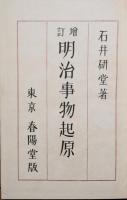 石井研堂著
增訂 明治事物起原
東京 春陽堂版